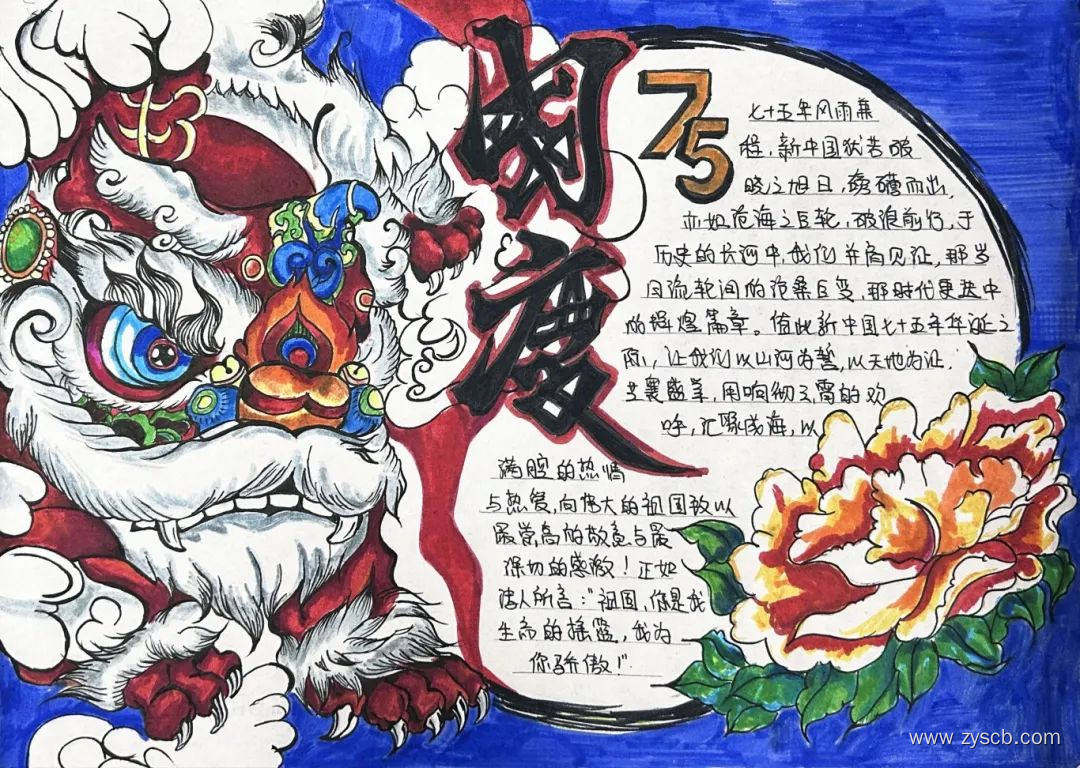 国庆
75
七十五年风雨兼
程,新中国犹若破
晓之旭日,磅礴而出,
亦如沧海之巨轮,破浪前行,于
历史的长河中,我们并肩见证,那岁
月流轮间的沧桑巨变,那时代更迭中
的辉煌篇章。值此新中国七十五年华诞之
际,让我们以山河为誓,以天地为证,
共襄盛举,用响彻云霄的欢
呼,汇聚成海,以
满腔的热情
与热爱,向伟大的祖国致以
最崇高的敬意与最
深切的感激!正如
诗人所言:"祖国,你是我
生命的摇篮,我为
你骄傲!"
www.zyscb.com